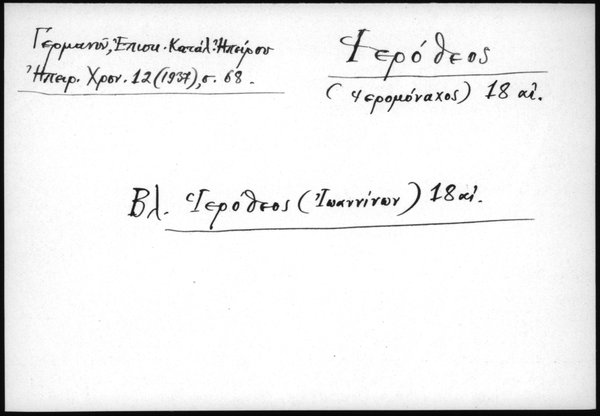 Γερμανοῦ, Ἐπισκ. Κατάλ. Ἠπείρου
Ἠπειρ. Χρον. 12 (1937), σ. 68.
Ἱερόθεος
(ἱερομόναχος) 18 αἰ.
Βλ. Ἱερόθεος (Ἰωαννίνων) 18 αἰ.